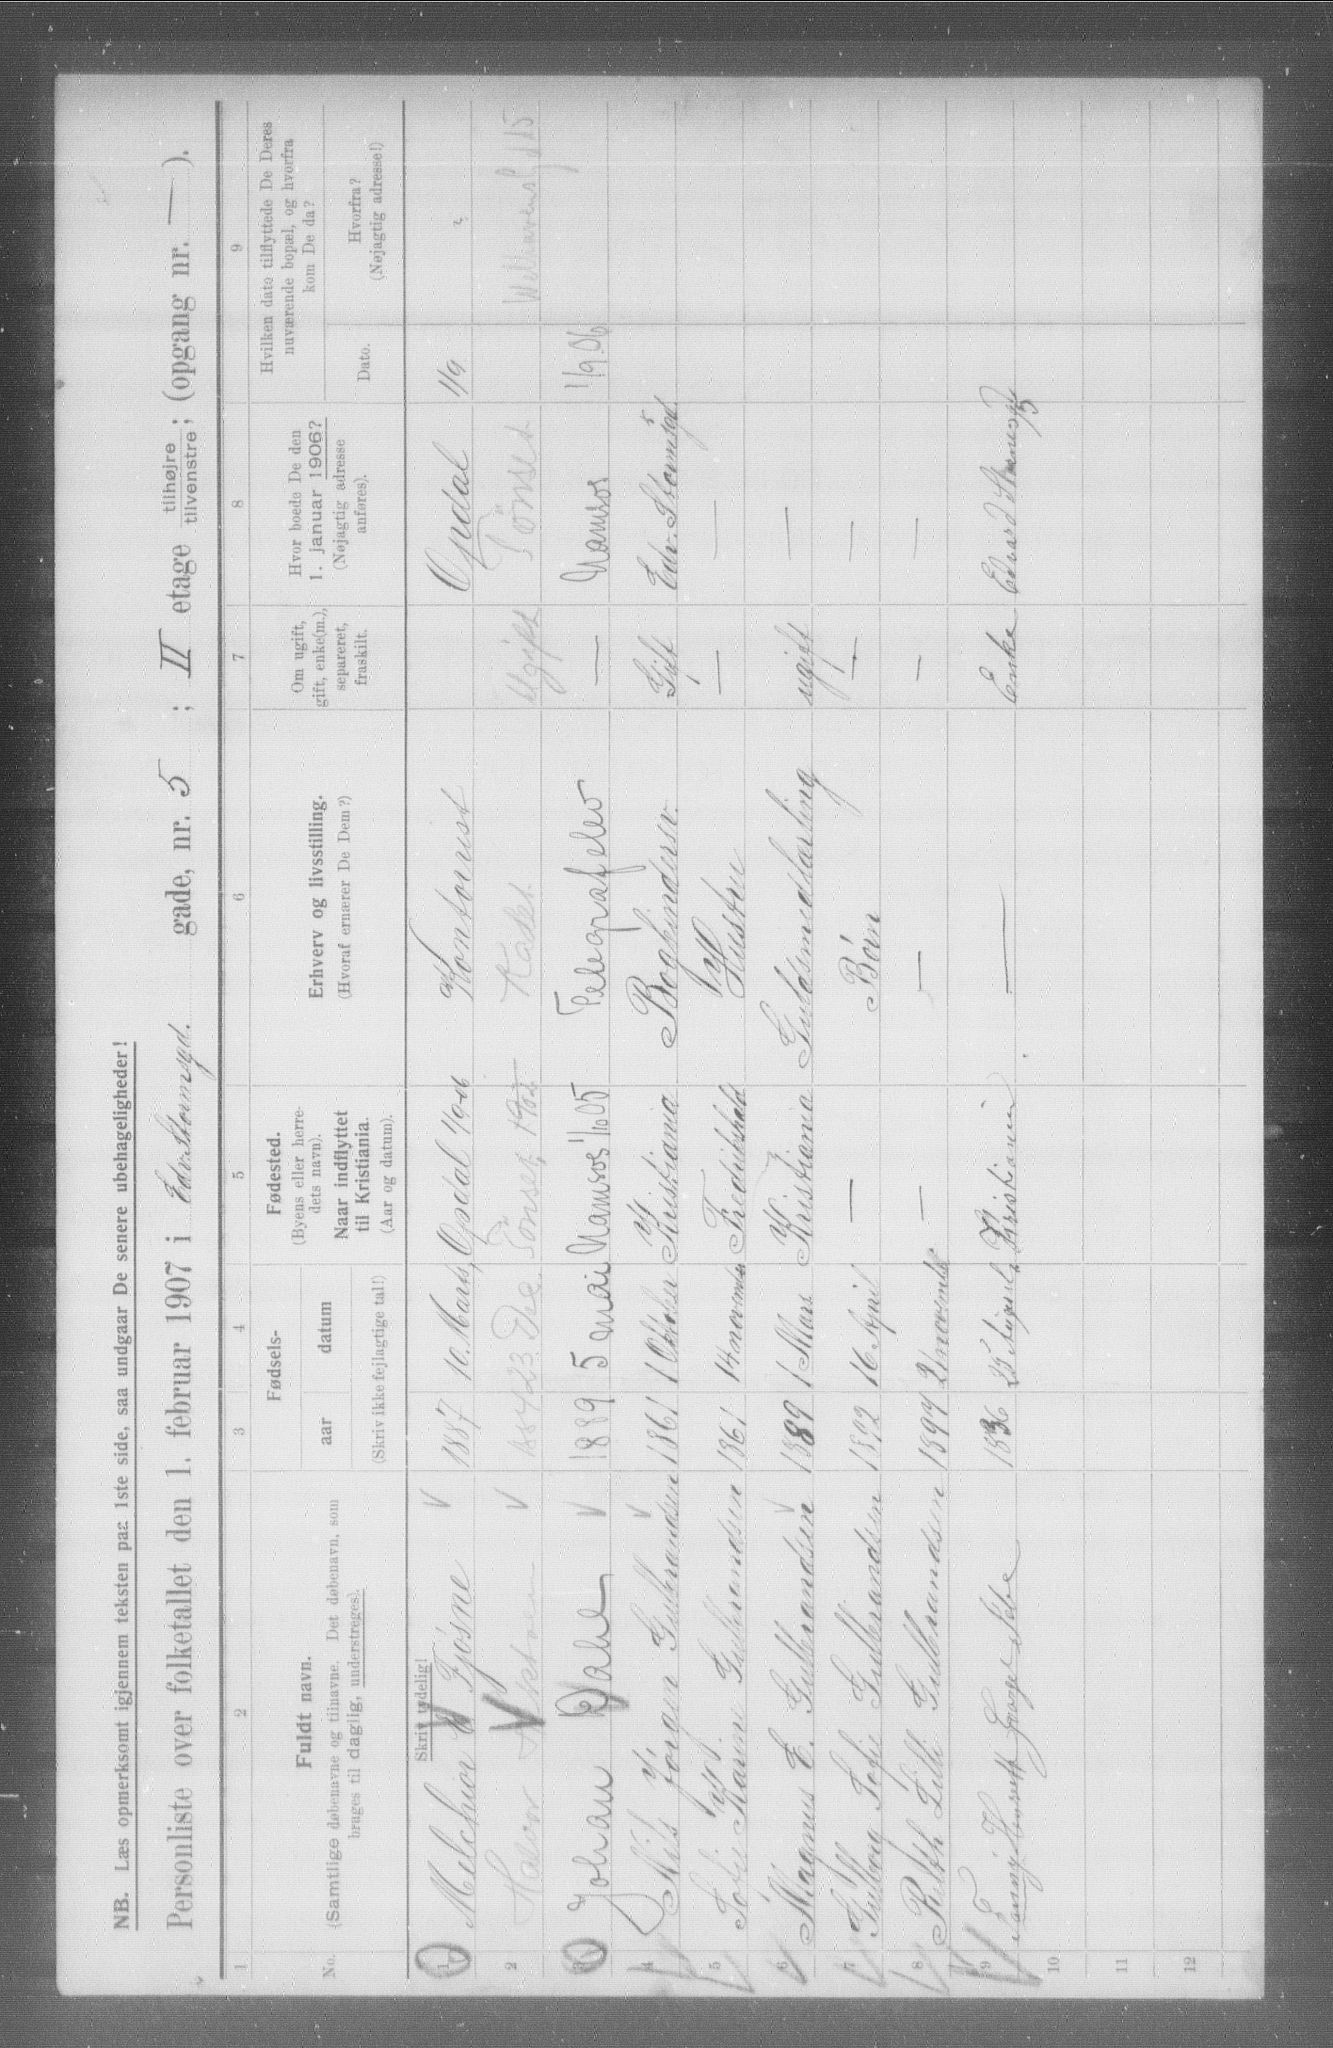 NB. Læs opmerksomt igjennem teksten paa 1ste side, saa undgaar De senere ubehageligheder!
Personliste over folketallet den 1. februar 1907 i Edv. Stormsgd. gade, nr. 5 ; II etage tilhøjre tilvenstre; (opgang nr. — ).
1 2 3 4 5 6 7 8 9
No.
Fuldt navn.
(Samtlige døbenavne og tilnavne. Det døbenavn, som
bruges til daglig, understreges).
Fødsels-
aar datum
(Skriv ikke fejlagtige tal!)
Fødested.
(Byens eller herre-
dets navn).
Naar indflyttet
til Kristiania.
(Aar og datum).
Erhverv og livsstilling.
(Hvoraf ernærer De Dem?)
Om ugift,
gift, enke(m.),
separeret,
fraskilt.
Hvor boede De den
1. januar 1906?
(Nøjagtig adresse
anføres).
Hvilken dato tilflyttede De Deres
nuværende bopæl, og hvorfra
kom De da?
Dato.
Hvorfra?
(Nøjagtig adresse!)
Skriv tydelig!
1 Melchior Fjøsne 1887 10. Marts, Opdal 1/9 06 Kontorist Opdal 1/9
2 Halvor 23 Dec. Tønset Ugift Tønset Welhavensgd 15
3 Johan 1889 5 mai Namsos 1/10 05 Telegrafelev — Namsos 1/9 06
4 Nils Jørgen Gulbrandsen 1861 1 Oktober Kristiania Bogbindersv. Gift Edv. Stormsgd. 5
5 Sofie Karen Gulbrandsen 1861 14 november Fredrikshald Hustru — —
6 Magnus E. Gulbrandsen 1889 1 Mars Kristiania Guldsmedlærling ugift —
7 Gulborg Sofie Gulbrandsen 1892 16 April — Børn — —
8 Ruth Lilli Gulbrandsen 1897 21 november — — — —
9 Fanny Henriette 1836 25 August, Kristiania — Enke Edvard Stormsgd 5
10
11
12